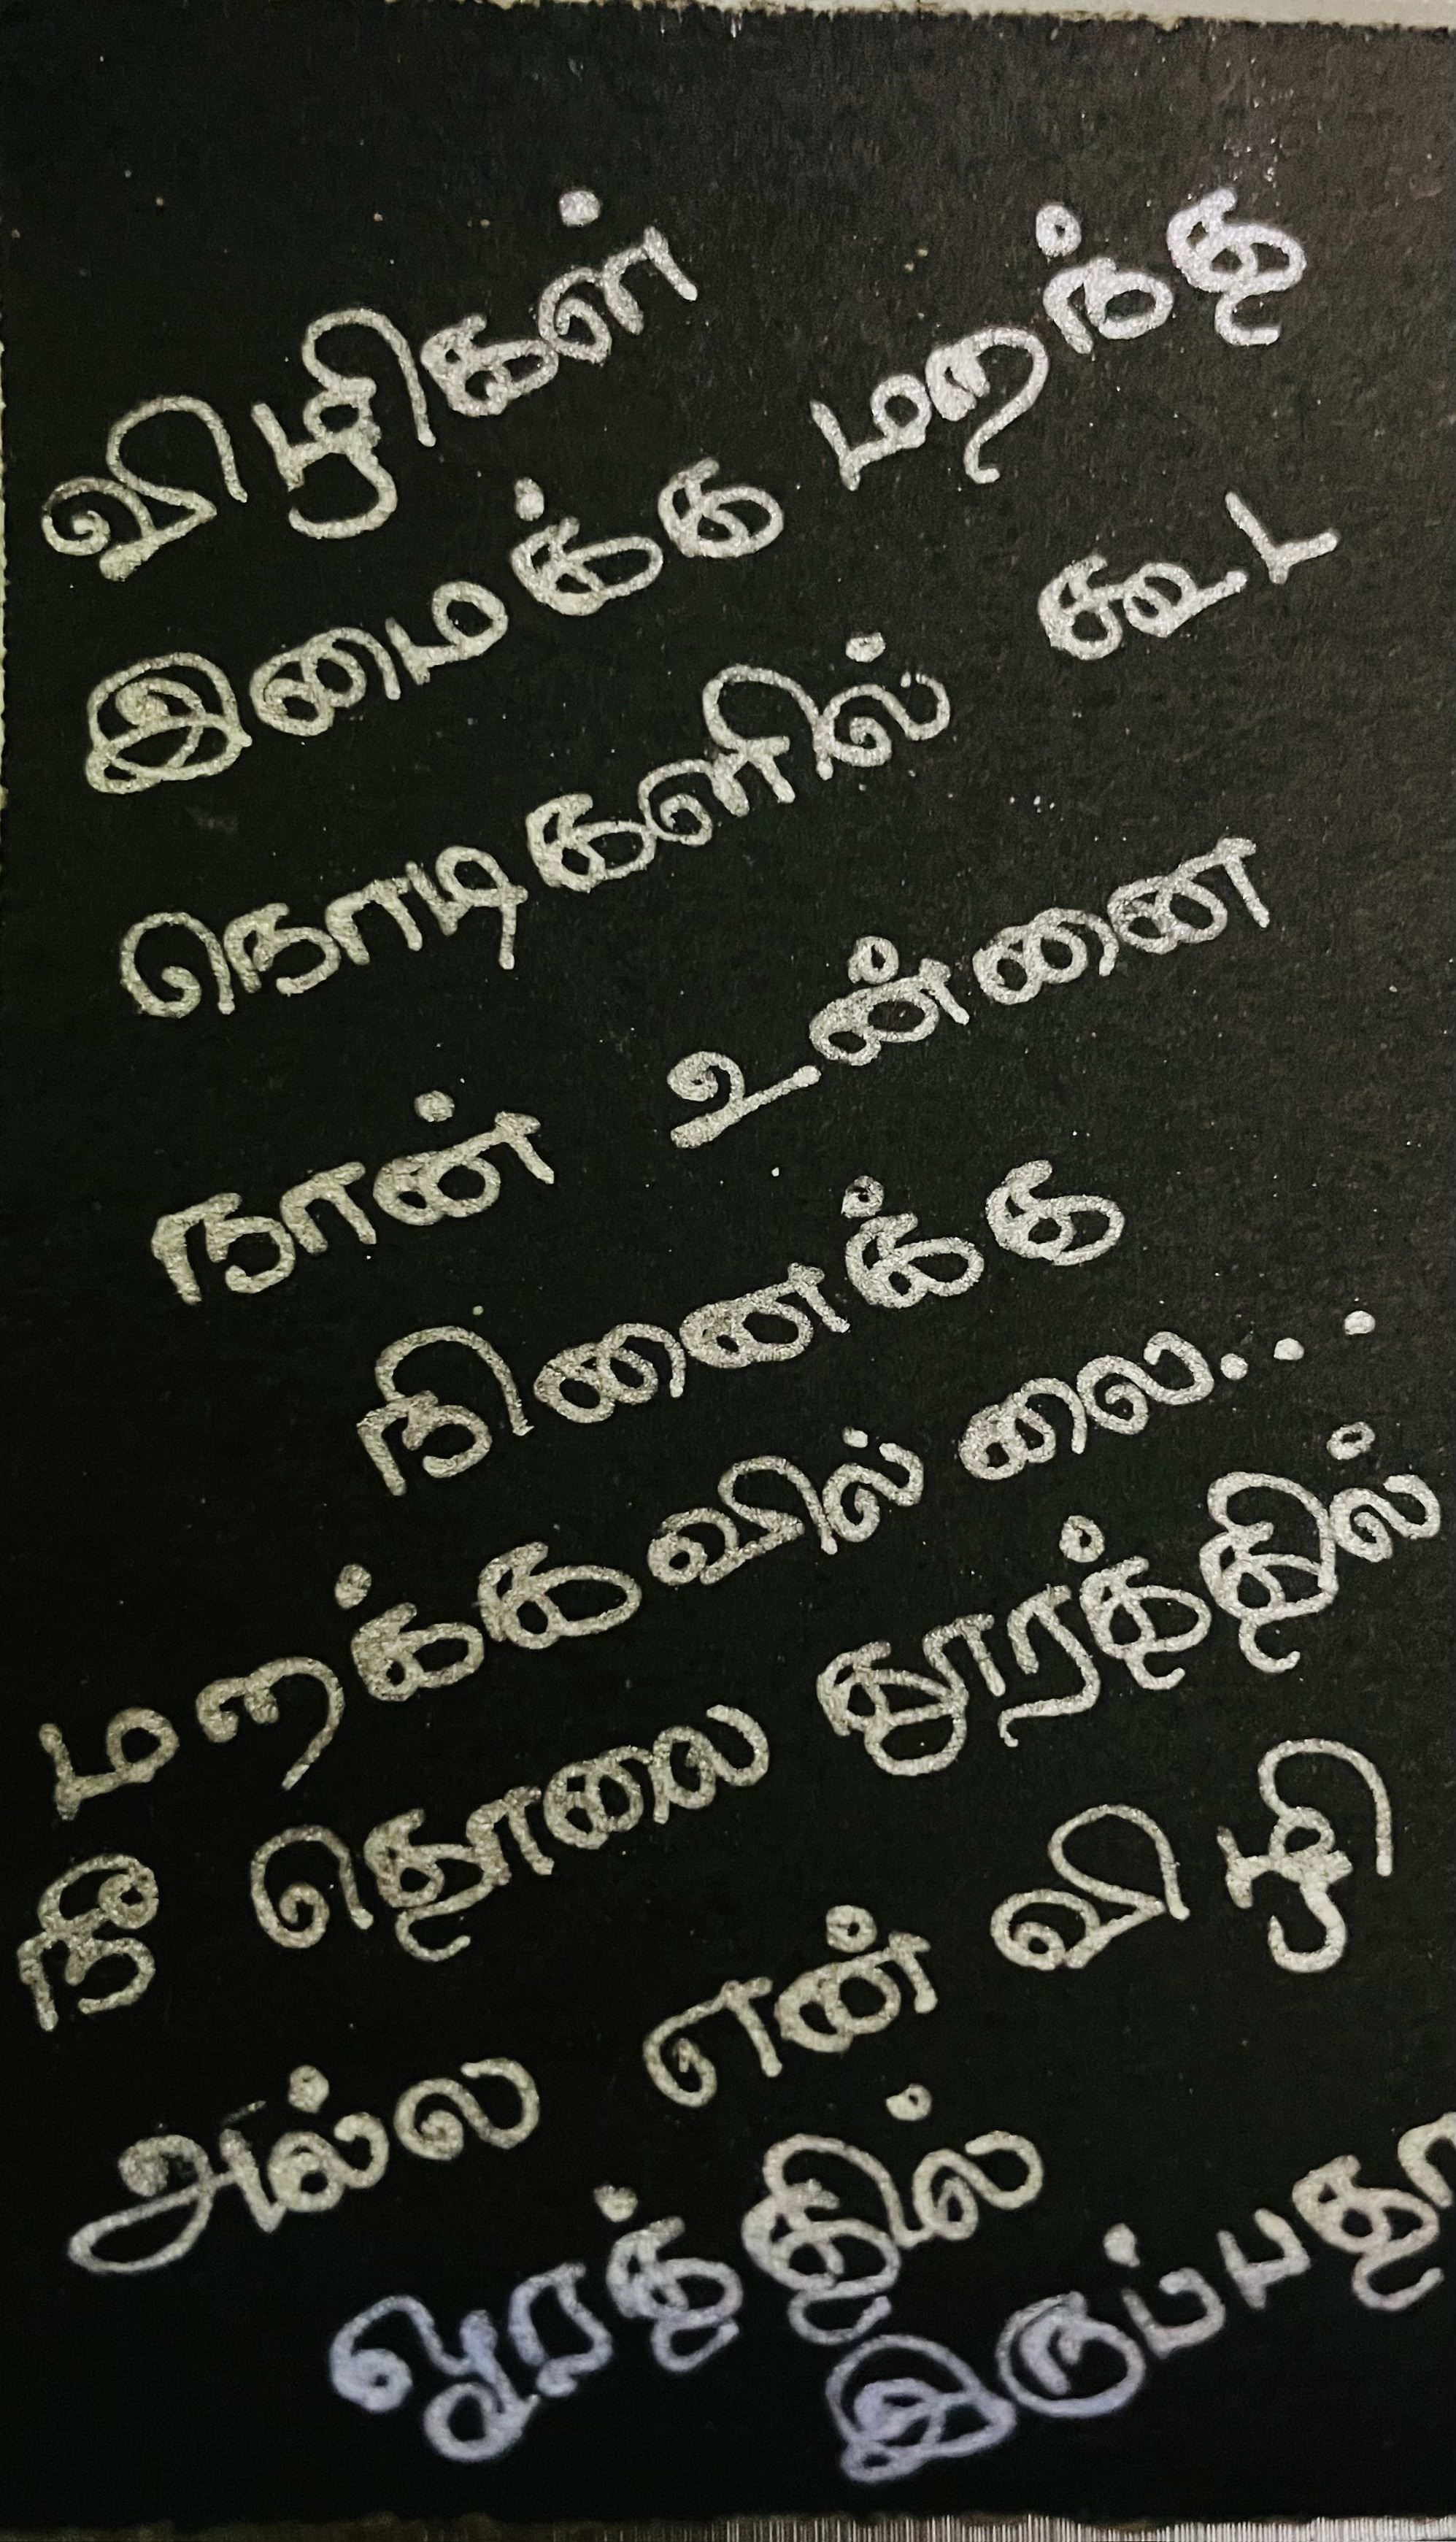 விழிகள்
இமைக்க மறந்த
நொடிகளில் கூட
நான் உன்னை
நினைக்க
மறக்கவில்லை...
நீ தொலை தூரத்தில்
அல்ல என் விழி
ஓரத்தில்
இருப்பதா